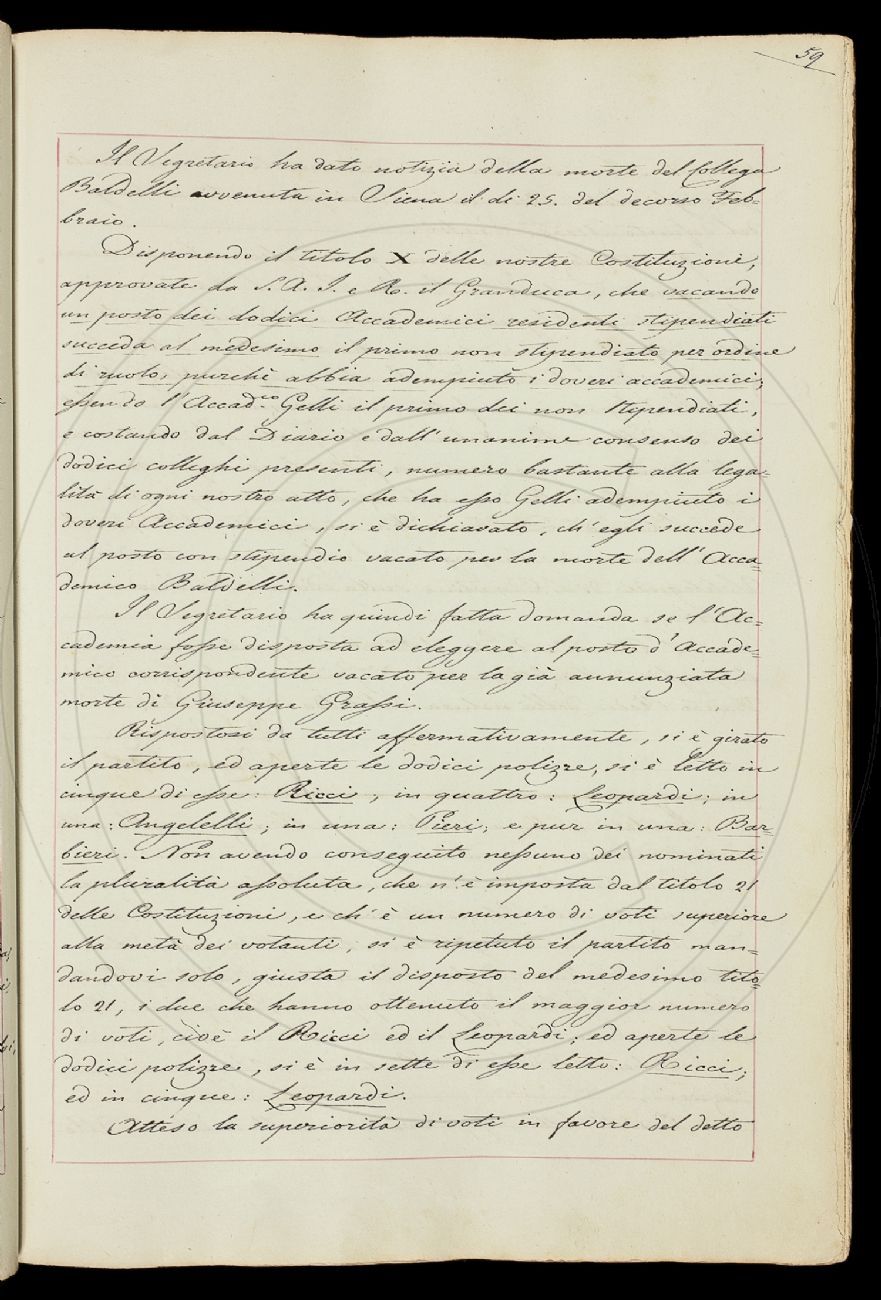 59
Il Segretario ha dato notizia della morte del Collega
Baldelli avvenuta in Siena il dì 25. del decorso Feb=
braio.
Disponendo il titolo X delle nostre Costituzioni,
approvate da S. A. I. e R. il Granduca, che vacando
un posto dei dodici Accademici residenti stipendiati
succeda al medesimo il primo non stipendiato per ordine
di ruolo, purchè abbia adempiuto i doveri accademici;
essendo l'Accad.co Gelli il primo dei non stipendiati,
e costando dal Diario e dall'unanime consenso dei
dodici colleghi presenti, numero bastante alla lega=
lità di ogni nostro atto, che ha esso Gelli adempiuto i
doveri Accademici, si è dichiarato, ch'egli succede
al posto con stipendio vacato per la morte dell'Acca=
demico Baldelli.
Il Segretario ha quindi fatta domanda se l'Ac=
cademia fosse disposta ad eleggere al posto d'Accade=
mico corrispondente vacato per la già annunziata
morte di Giuseppe Grassi.
Rispostosi da tutti affermativamente, si è girato
il partito, ed aperte le dodici polizze, si è letto in
cinque di esse: Ricci; in quattro: Leopardi; in
una: Angelelli; in una: Pieri; e pur in una: Bar=
bieri. Non avendo conseguito nessuno dei nominati
la pluralità assoluta, che n'è imposta dal titolo 21
delle Costituzioni, e ch'è un numero di voti superiore
alla metà dei votanti, si è ripetuto il partito man=
dandovi solo, giusta il disposto del medesimo tito=
lo 21, i due che hanno ottenuto il maggior numero
di voti, cioè il Ricci ed il Leopardi; ed aperte le
dodici polizze, si è in sette di esse letto: Ricci;
ed in cinque: Leopardi.
Atteso la superiorità di voti in favore del detto